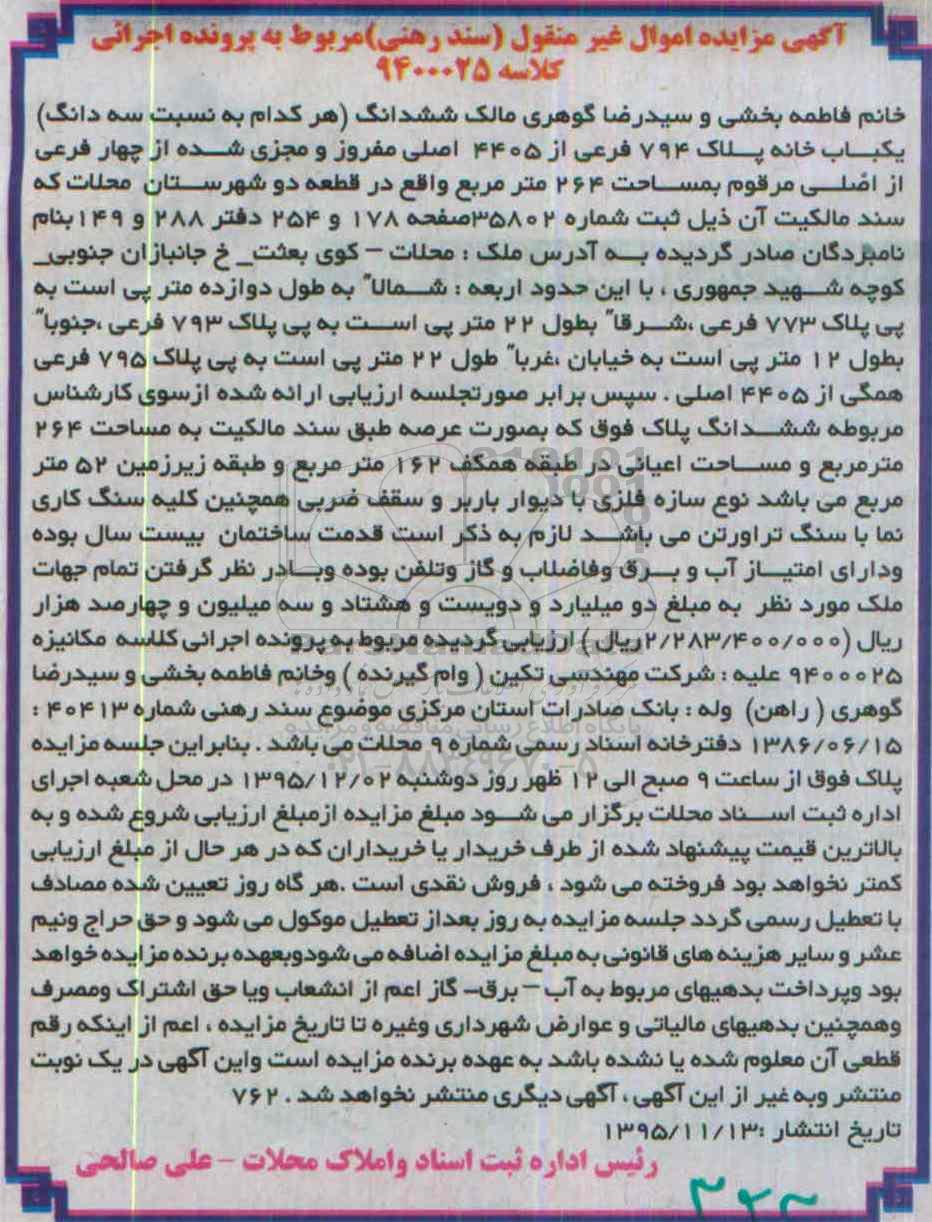 آگهی مزایده اموال غیر منقول (سند رهنی)مربوط به پرونده اجرائی
کلاسه ۹۴۰۰۰۲۵
خانم فاطمه بخشی و سیدرضا گوهری مالک ششدانگ (هر کدام به نسبت سه دانگ)
یکبـاب خانه پـلاک ۷۹۴ فرعی از ۴۴۰۵ اصلی مفروز و مجزی شـده از چهار فرعی
از اصلـی مرقوم بمسـاحت ۲۶۴ متر مربع واقع در قطعه دو شهرسـتان محلات که
سند مالکیت آن ذیل ثبت شماره ۳۵۸۰۲صفحه ۱۷۸ و ۲۵۴ دفتر ۲۸۸ و ۱۴۹بنام
نامبردگان صادر گردیده بـه آدرس ملک : محلات – کوی بعثت_ خ جانبازان جنوبی_
کوچه شـهید جمهوری ، با این حدود اربعه : شـمالا" به طول دوازده متر پی است به
پی پلاک ۷۷۳ فرعی ،شـرقا" بطول ۲۲ متر پی اسـت به پی پلاک ۷۹۳ فرعی ،جنوبا"
بطول ۱۲ متر پی است به خیابان ،غربا" طول ۲۲ متر پی است به پی پلاک ۷۹۵ فرعی
همگی از ۴۴۰۵ اصلی . سپس برابر صورتجلسه ارزیابی ارائه شده ازسوی کارشناس
مربوطه ششـدانگ پلاک فوق که بصورت عرصه طبق سند مالکیت به مساحت ۲۶۴
مترمربع و مسـاحت اعیانی در طبقه همکف ۱۶۲ متر مربع و طبقه زیرزمین ۵۲ متر
مربع می باشد نوع سازه فلزی با دیوار باربر و سقف ضربی همچنین کلیه سنگ کاری
نما با سنگ تراورتن می باشـد لازم به ذکر است قدمت ساختمان بیست سال بوده
ودارای امتیـاز آب و بـرق وفاضلاب و گاز وتلفن بوده وبـادر نظر گرفتن تمام جهات
ملک مورد نظر به مبلغ دو میلیارد و دویست و هشتاد و سه میلیون و چهارصد هزار
ریال (۲/۲۸۳/۴۰۰/۰۰۰ریال ) ارزیابی گردیده مربوط به پرونده اجرائی کلاسه مکانیزه
۹۴۰۰۰۲۵ علیه : شرکت مهندسی تکین ( وام گیرنده ) وخانم فاطمه بخشی و سیدرضا
گوهری ( راهن) وله : بانک صادرات استان مرکزی موضوع سند رهنی شماره ۴۰۴۱۳ :
۱۳۸۶/۰۶/۱۵ دفترخانه اسناد رسمی شماره ۹ محلات می باشد . بنابراین جلسه مزایده
پلاک فوق از ساعت ۹ صبح الی ۱۲ ظهر روز دوشنبه ۱۳۹۵/۱۲/۰۲ در محل شعبه اجرای
اداره ثبت اسـناد محلات برگزار می شـود مبلغ مزایده ازمبلغ ارزیابی شروع شده و به
بالاترین قیمت پیشنهاد شده از طرف خریدار یا خریداران که در هر حال از مبلغ ارزیابی
کمتر نخواهد بود فروخته می شود ، فروش نقدی است .هر گاه روز تعیین شده مصادف
با تعطیل رسمی گردد جلسه مزایده به روز بعداز تعطیل موکول می شود و حق حراج ونیم
عشر و سایر هزینه های قانونی به مبلغ مزایده اضافه می شودوبعهده برنده مزایده خواهد
بود وپرداخت بدهیهای مربوط به آب – برق- گاز اعم از انشعاب ویا حق اشتراک ومصرف
وهمچنین بدهیهای مالیاتی و عوارض شهرداری وغیره تا تاریخ مزایده ، اعم از اینکه رقم
قطعی آن معلوم شده یا نشده باشد به عهده برنده مزایده است واین آگهی در یک نوبت
منتشر وبه غیر از این آگهی ، آگهی دیگری منتشر نخواهد شد . ۷۶۲
تاریخ انتشار :۱۳۹۵/۱۱/۱۳
رئیس اداره ثبت اسناد واملاک محلات - علی صالحی